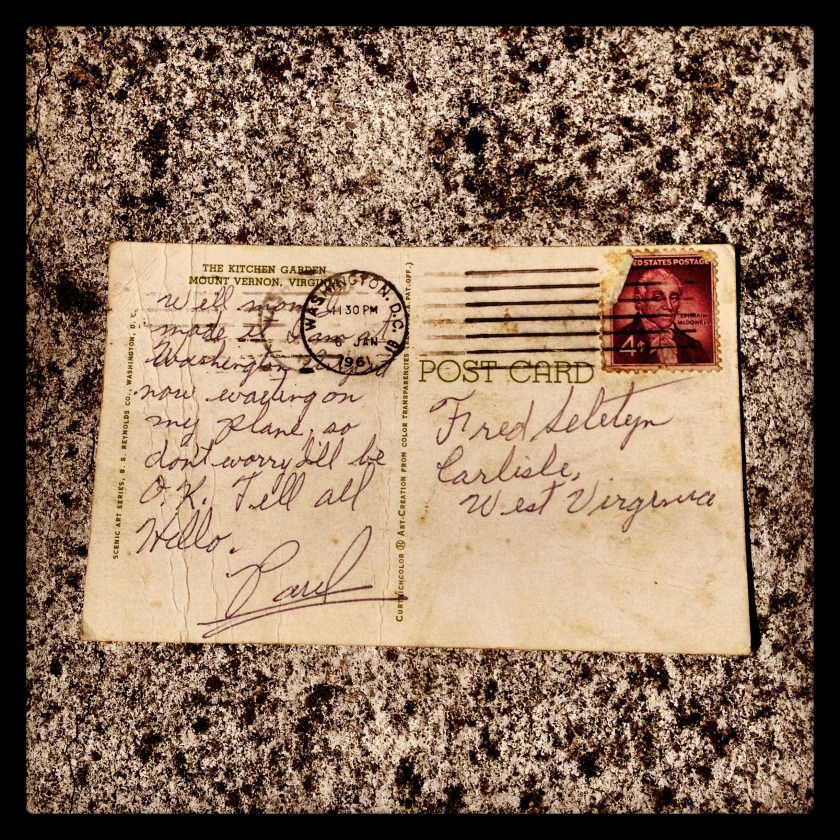 THE KITCHEN GARDEN
MOUNT VERNON, VIRGINIA
Well mom I
made it I am at
Washington
now waiting on
my plane, so
don't worry I'll be
O.K. Tell all
Hello.
SCENIC ART SERIES, B. S. REYNOLDS CO., WASHINGTON, D. C.
CURTEICHCOLOR ® ART-CREATION FROM COLOR TRANSPARENCIES PAT. OFF.)
WASHINGTON, D.C.
4 30 PM
6 JAN
1961
UNITED STATES POSTAGE
EPHRAIM
McDOWELL
4¢
POST CARD
Fred
Carlisle,
West Virginia